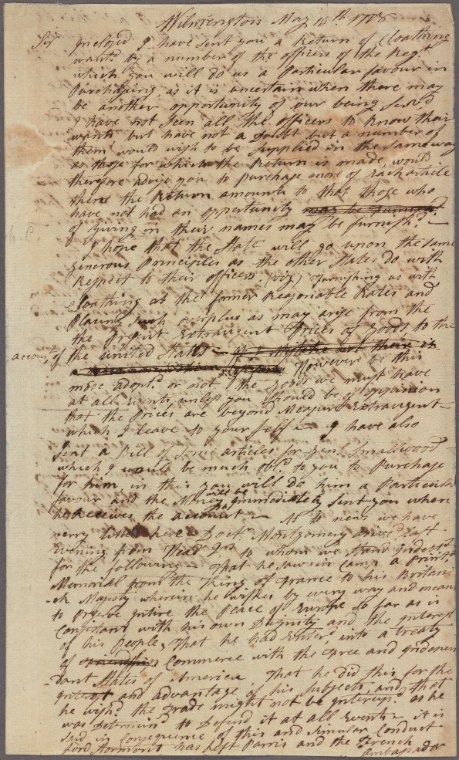 Wilmington May 15th 1778
Sir Inclosed I have sent you a Return of Cloathing
wanted by a number of the officers of the Regt
which you will do us a Particular favour in
Purchasing as it is uncertain when there may
be another opportunity of our being Served
I have not seen all the officers to know their
wants but have not a doubt but a number of
them would wish to be supplied in the same way
as those for whom the Return is made, would
therefore advise you to purchase more of each article
then the Return amounts to that those who
have not had an opportunity
of giving in their names may be furnish'd
I hope that the State will go upon the same
generous Principles as the other States do with
Respect to their officers (viz) furnishing us with
Cloathing at the former Reasonable Rates and
Placing such surplus as may arise from the
the Present Extravagent Prices of Goods, to the
account of the United States
However be this
mode adopted or not the Goods we must have
at all events, unless you should be of oppinion
that the Prices are beyond Measure Extravagent
which I leave to your self I have also
Sent a Bill of some articles for Gen Smallwood
which I would be much obld to you to Purchase
for him, in this you will do him a Particular
favour and the Money will be immediately sent you when
he receives the account As to news we have
very little here Doctr Montgomery arrived last
Evening from Head Qrs to whom we stand indebted
for the following That he saw in camp a Print
Memorial from the King of France to his Britanic
Majesty wherein he wishes by every way and means
to Preserve intire the Peace of Europe so far as is
Consistant with his own Dignity and the interest
of his People, that he had enter'd into a treaty
of Commerce with the free and independant
States of America that he did this for the
interest and advantage of his Subjects, and that
he wish'd the trade might not be interup as he
was determined to Defend it at all Events it is
said in Consequence of this and simular Conduct
Lord Stormont has left Parris and the French
Ambassador